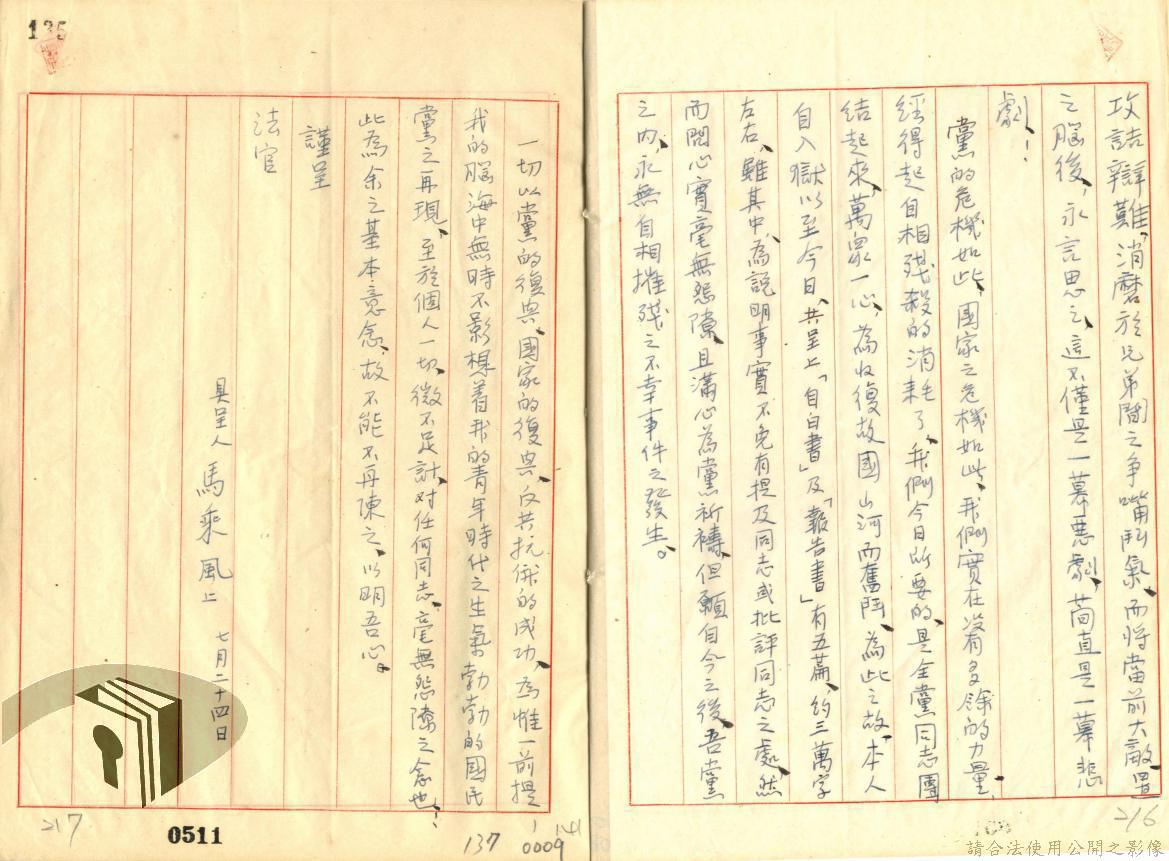 攻詰辯難、消磨於兄弟鬩之爭嘴鬥氣、而將當前大敵置
之腦後、永言思之、這不僅是一幕悪劇、茼直是一幕悲
劇！
黨的危機如此、國家之危機如此、我們實在沒有多餘的力量、
經得起自相殘殺的消耗了、我們今日所要的、是全黨同志團
結起來、萬眾一心、為收復故國山河而奮鬥、為此之故、本人
自入獄以至今日、共呈上「自白書」及「報告書」有五篇、約三萬字
左右、雖其中、為說明事實不免有提及同志或批評同志之處、然
而問心實毫無怨隙、且滿心為黨祈禱、但願自今之後、吾黨
之內、永無自相摧殘之不幸事件之發生。
一切以黨的復興、國家的復興、反共抗俄的成功、為惟一前提、
我的腦海中無時不影想着我的青年時代之生氣勃勃的國民
黨之再現、至於個人一切、微不足計、对任何同志、毫無怨隙之念也！
此為余之基本意念、故不能不再陳之、以明吾心。
謹呈
法官
具呈人 馬乘風上 七月二十四日
135
217
0511
137
0009
141
216
請合法使用公開之影像